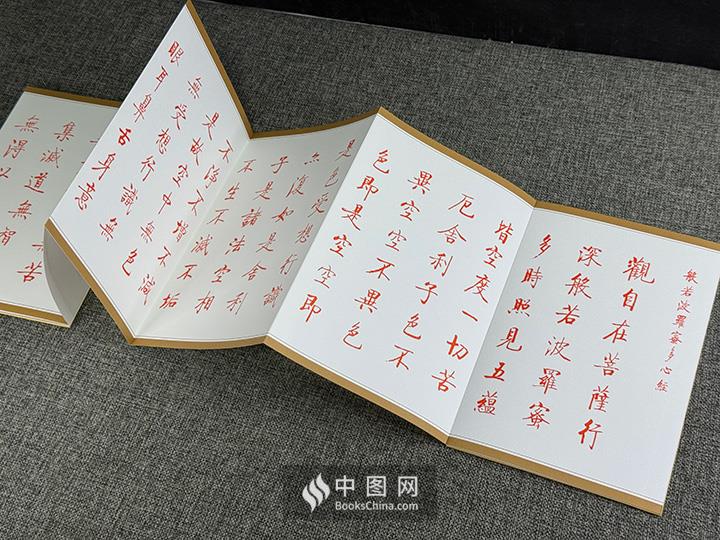 般若波羅蜜多心經
觀自在菩薩行
深般若波羅蜜
多時照見五蘊
皆空度一切苦
厄舍利子色不
異空空不異色
色即是空空即
是色受想行識
亦復如是舍利
子是諸法空相
不生不滅不垢
不淨不增不減
是故空中無色
無受想行識無
眼耳鼻舌身意
集滅道無智
無得以
中图网
BooksChina.com